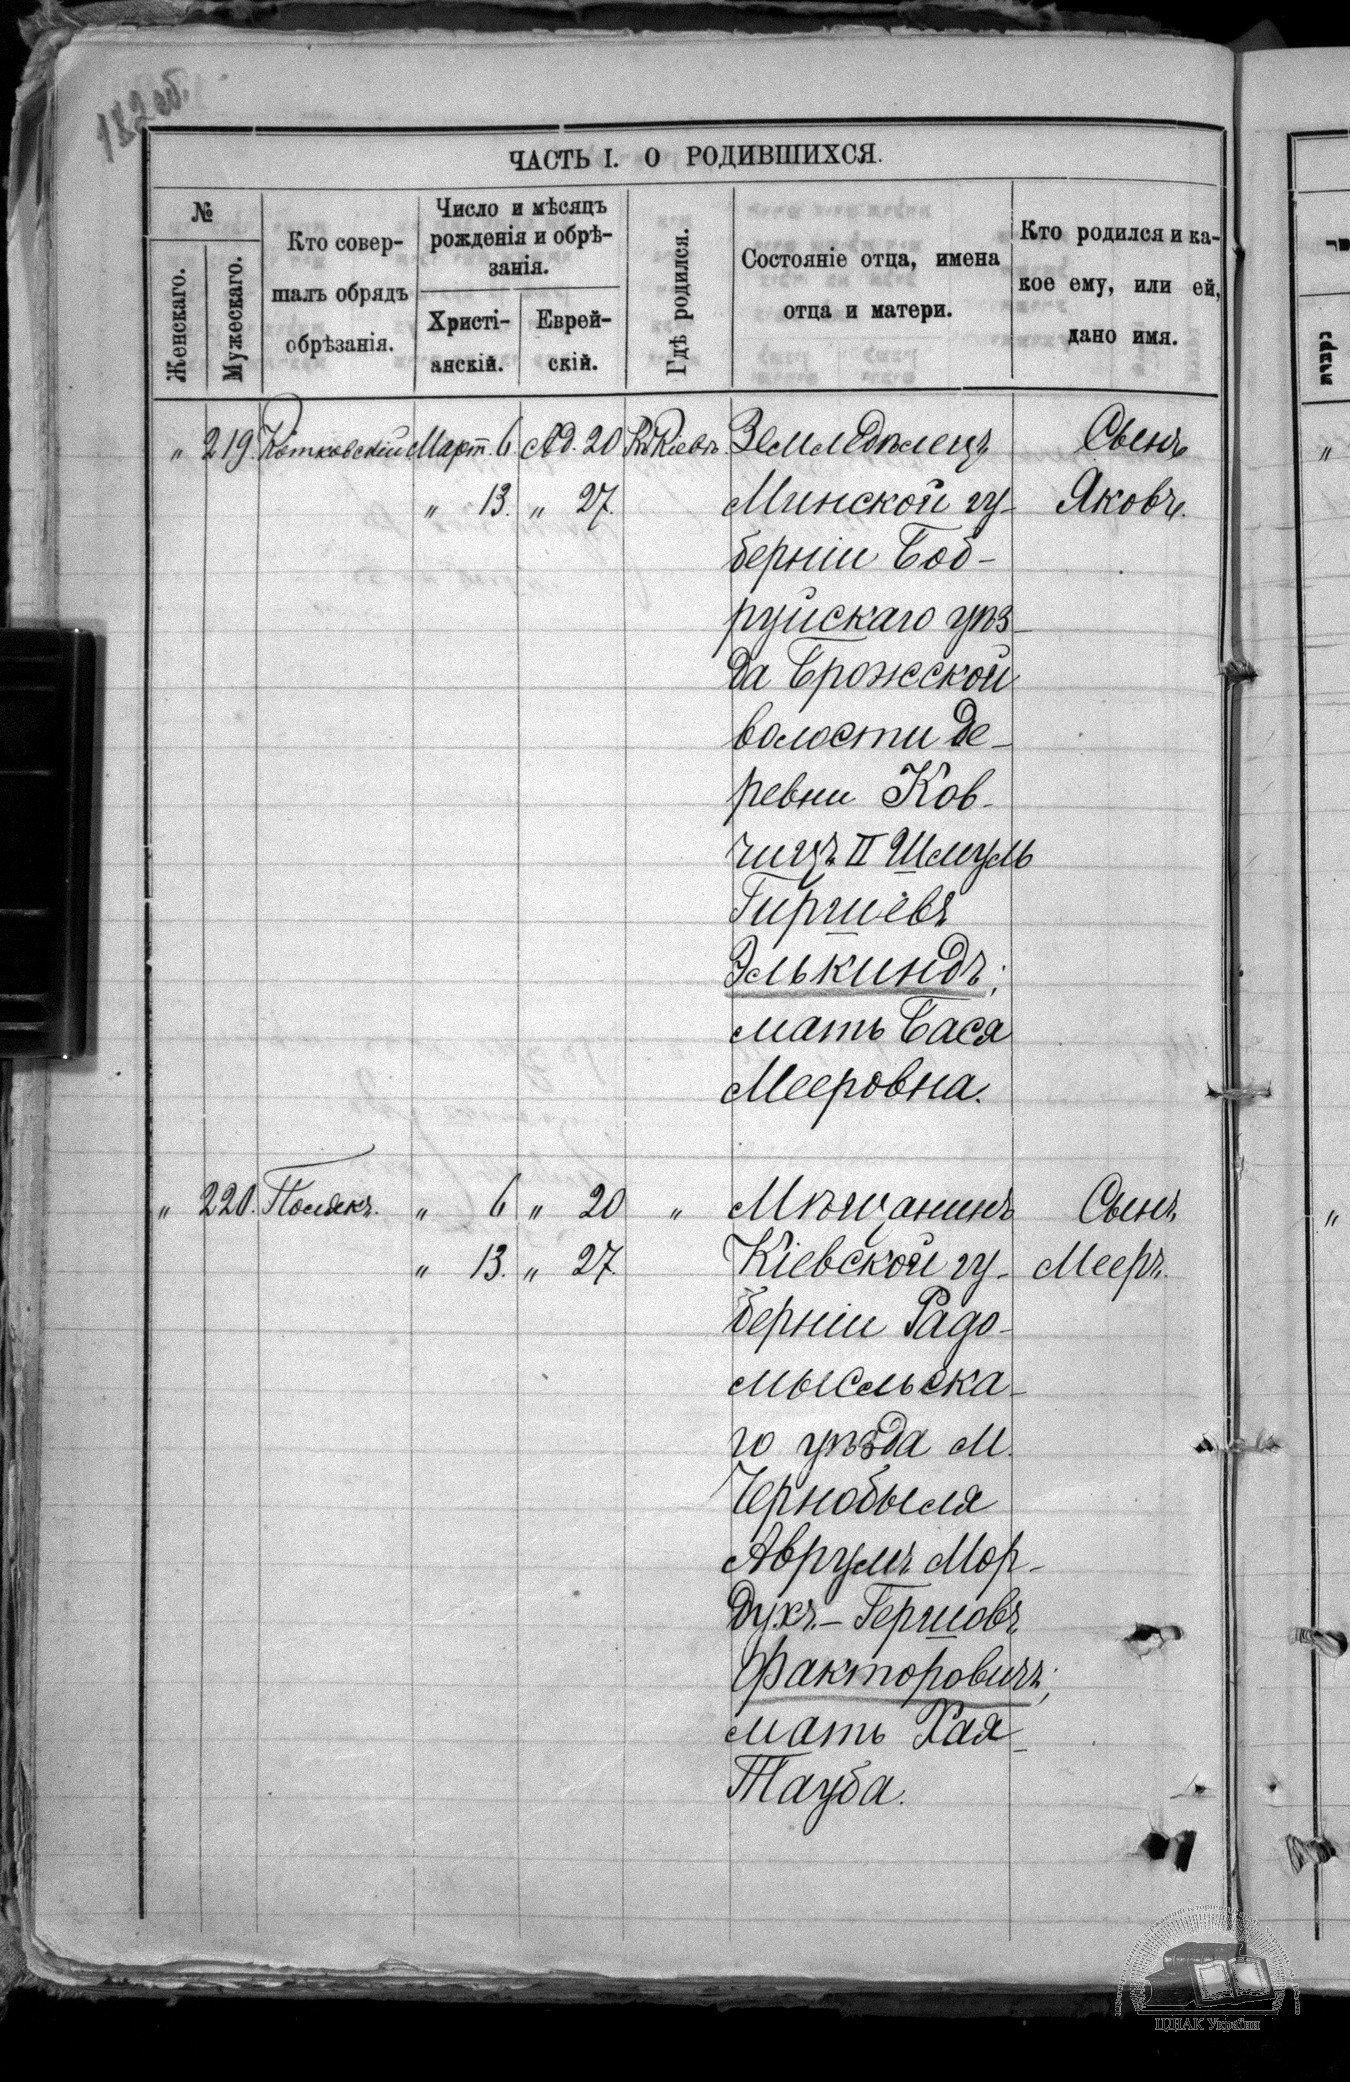 182 об.
ЧАСТЬ I. О РОДИВШИХСЯ.
№
Женскаго.
Мужескаго.
Кто совер-
шалъ обрядъ
обрѣзанія.
Число и мѣсяцъ
рожденія и обрѣ-
занія.
Христі-
анскій.
Еврей-
скій.
Гдѣ родился.
Состояніе отца, имена
отца и матери.
Кто родился и ка-
кое ему, или ей,
дано имя.
" 219. Котковскій Март. 6 Ад. 20 Въ Кіевѣ. Земледѣлецъ Сынъ
" 13. " 27. Минской гу- Яковъ.
берніи Боб-
руйскаго уѣз-
да Брожской
волости де-
ревни Ков-
чицъ II Шмуль
Гиршевъ
Элькиндъ;
мать Бася
Мееровна.
" 220. Полякъ. " 6 " 20 " Мѣщанинъ Сынъ
" 13. " 27. Кіевской гу- Мееръ.
берніи Радо-
мысльска-
го уѣзда м.
Чернобыля
Аврумъ Мор-
духъ-Гершовъ
Факторовичъ;
мать Хая-
Тауба.
ЦДІАК України